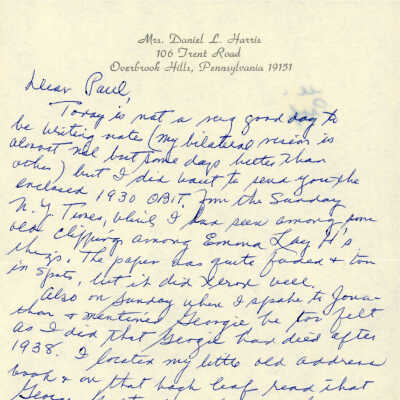 Mrs. Daniel L. Harris
106 Trent Road
Overbrook Hills, Pennsylvania 19151
Dear Paul,
Today is not a very good day to
be writing notes (my bilateral vision is
almost nil but some days better than
other) but I did want to send you the
enclosed 1930 OBit. from the Sunday
N.Y. Times, which I had seen among some
old clippings among Emma Lay H's
things. The paper was quite faded & torn
in spots, but it did xerox well.
Also on Sunday when I spoke to Jona-
than & mentioned Georgie he too felt
as I did that Georgie had died after
1938. I located my little old address
book & on that back leaf read that